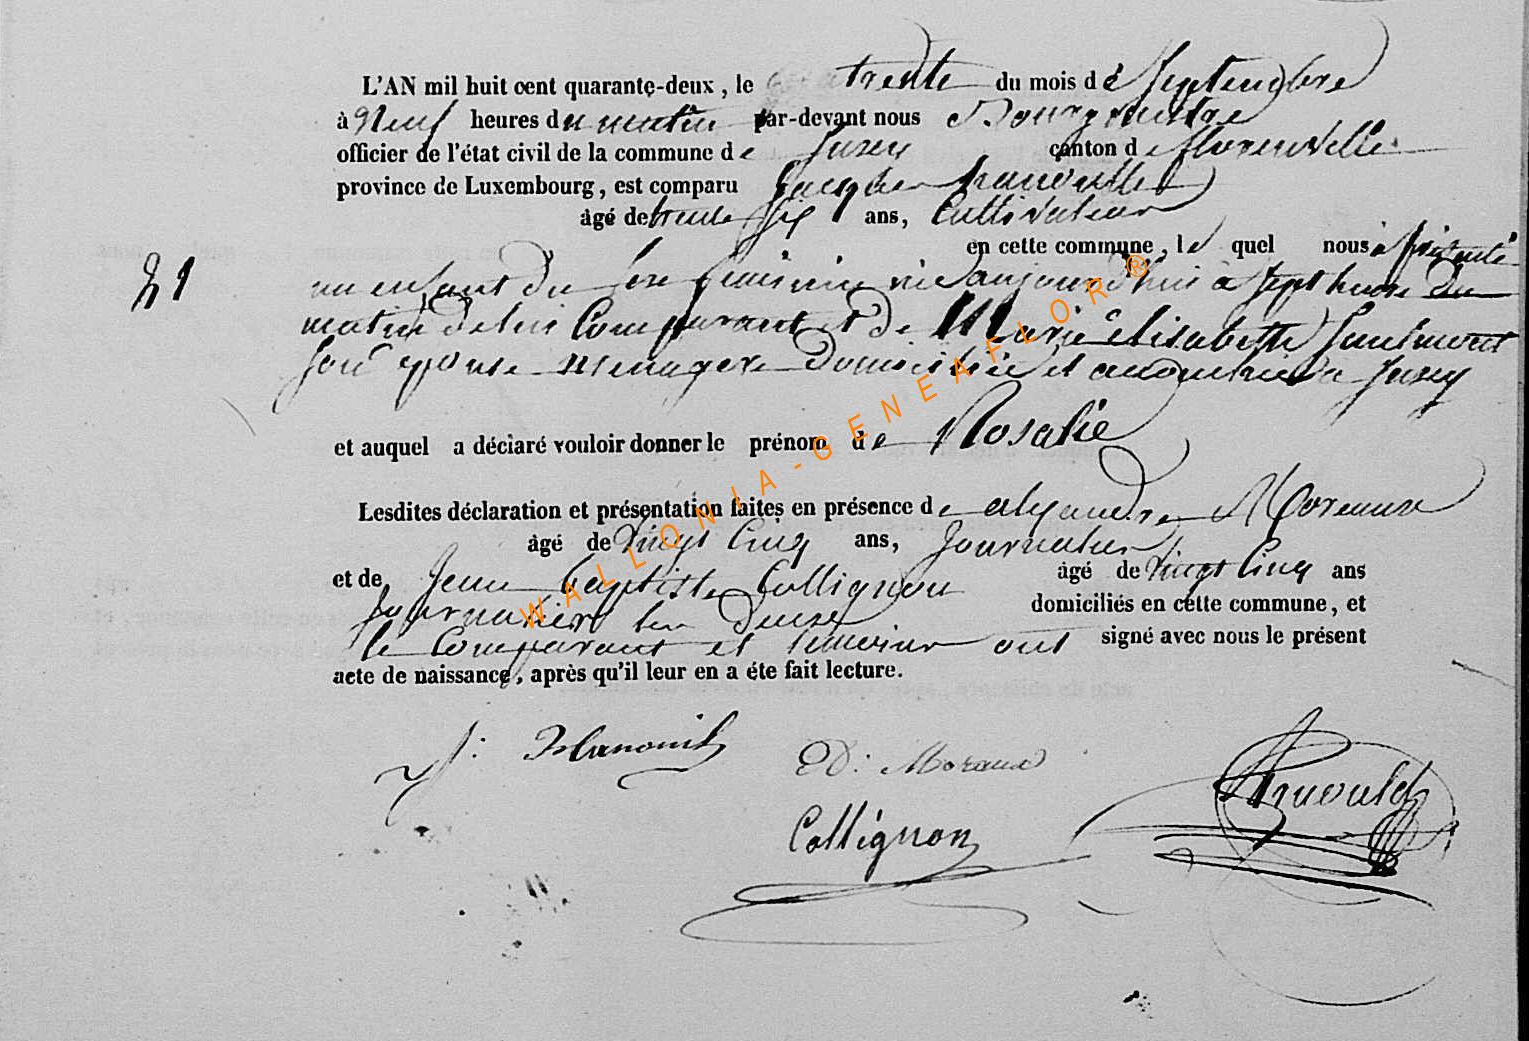 L'AN mil huit cent quarante-deux, le trente du mois de Septembre
à Neuf heures du matin par-devant nous Bourgmestre
officier de l'état civil de la commune de Suxy canton de florenville
province de Luxembourg, est comparu Jacques hanoville
âgé de trente six ans, Cultivateur
en cette commune, le quel nous a présenté
21 un enfant du sexe féminin née aujourd'hui à Sept heures du
matin de lui Comparant et de Marie elisabeth
son epouse menagere Domiciliée et à Suxy
et auquel a déclaré vouloir donner le prénom de Rosalie
Lesdites déclaration et présentation faites en présence de
âgé de vingt Cinq ans, Journalier
et de Jean Baptiste Collignon âgé de vingt Cinq ans
journalier domiciliés en cette commune, et
le Comparant et temoins ont signé avec nous le présent
acte de naissance, après qu'il leur en a éte fait lecture.
J: Hanouil
Moraux
Collignon
Arnould
WALLONIA-GENEAFLOR®